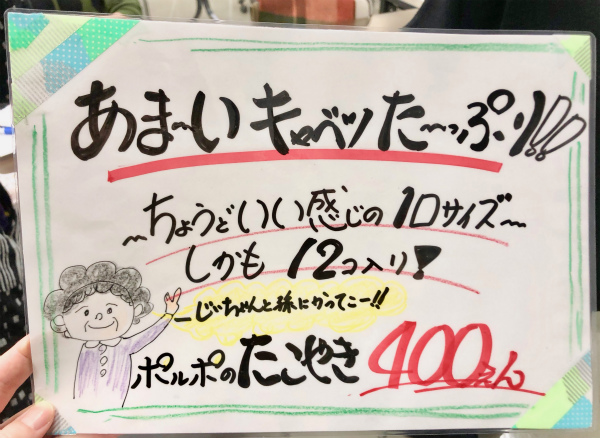 あま〜いキャベツた〜っぷり!!
〜ちょうどいい感じの1口サイズ〜
しかも12コ入り!
ーじいちゃんと孫にかってこー!!
ポルポのたこやき 400えん